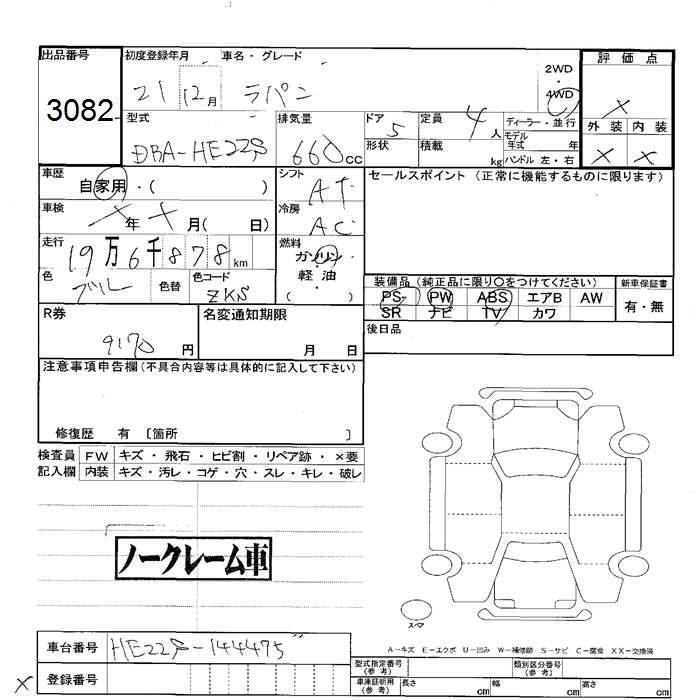 出品番号 初度登録年月 車名・グレード 2WD・4WD 評価点
3082 21 12月 ラパン X
型式 排気量 ドア 定員 ディーラー・並行 外装 内装
DBA-HE22S 660cc 5 4人 モデル年式 年 X X
形状 積載 kg ハンドル 左・右
車歴 シフト セールスポイント (正常に機能するものに限ります)
自家用・( ) AT
車検 冷房
X年 X月( 日) AC
走行 燃料
19万6千878km ガソリン・軽油・( )
色 色替 色コード 装備品 (純正品に限り〇をつけてください) 新車保証書
ブルー ZKS PS PW ABS エアB AW 有・無
SR ナビ TV カワ
R券 名変通知期限 後日品
9170円 月 日
注意事項申告欄 (不具合内容等は具体的に記入して下さい)
修復歴 有 〔箇所 〕
検査員 FW キズ・飛石・ヒビ割・リペア跡・×要
記入欄 内装 キズ・汚レ・コゲ・穴・スレ・キレ・破レ
ノークレーム車
スペア
A-キズ E-エクボ U-凹み W-補修跡 S-サビ C-腐食 XX-交換済
車台番号 HE22S-144475 型式指定番号 (参考) 類別区分番号 (参考)
X 登録番号 車庫証明用 (参考) 長さ cm 幅 cm 高さ cm